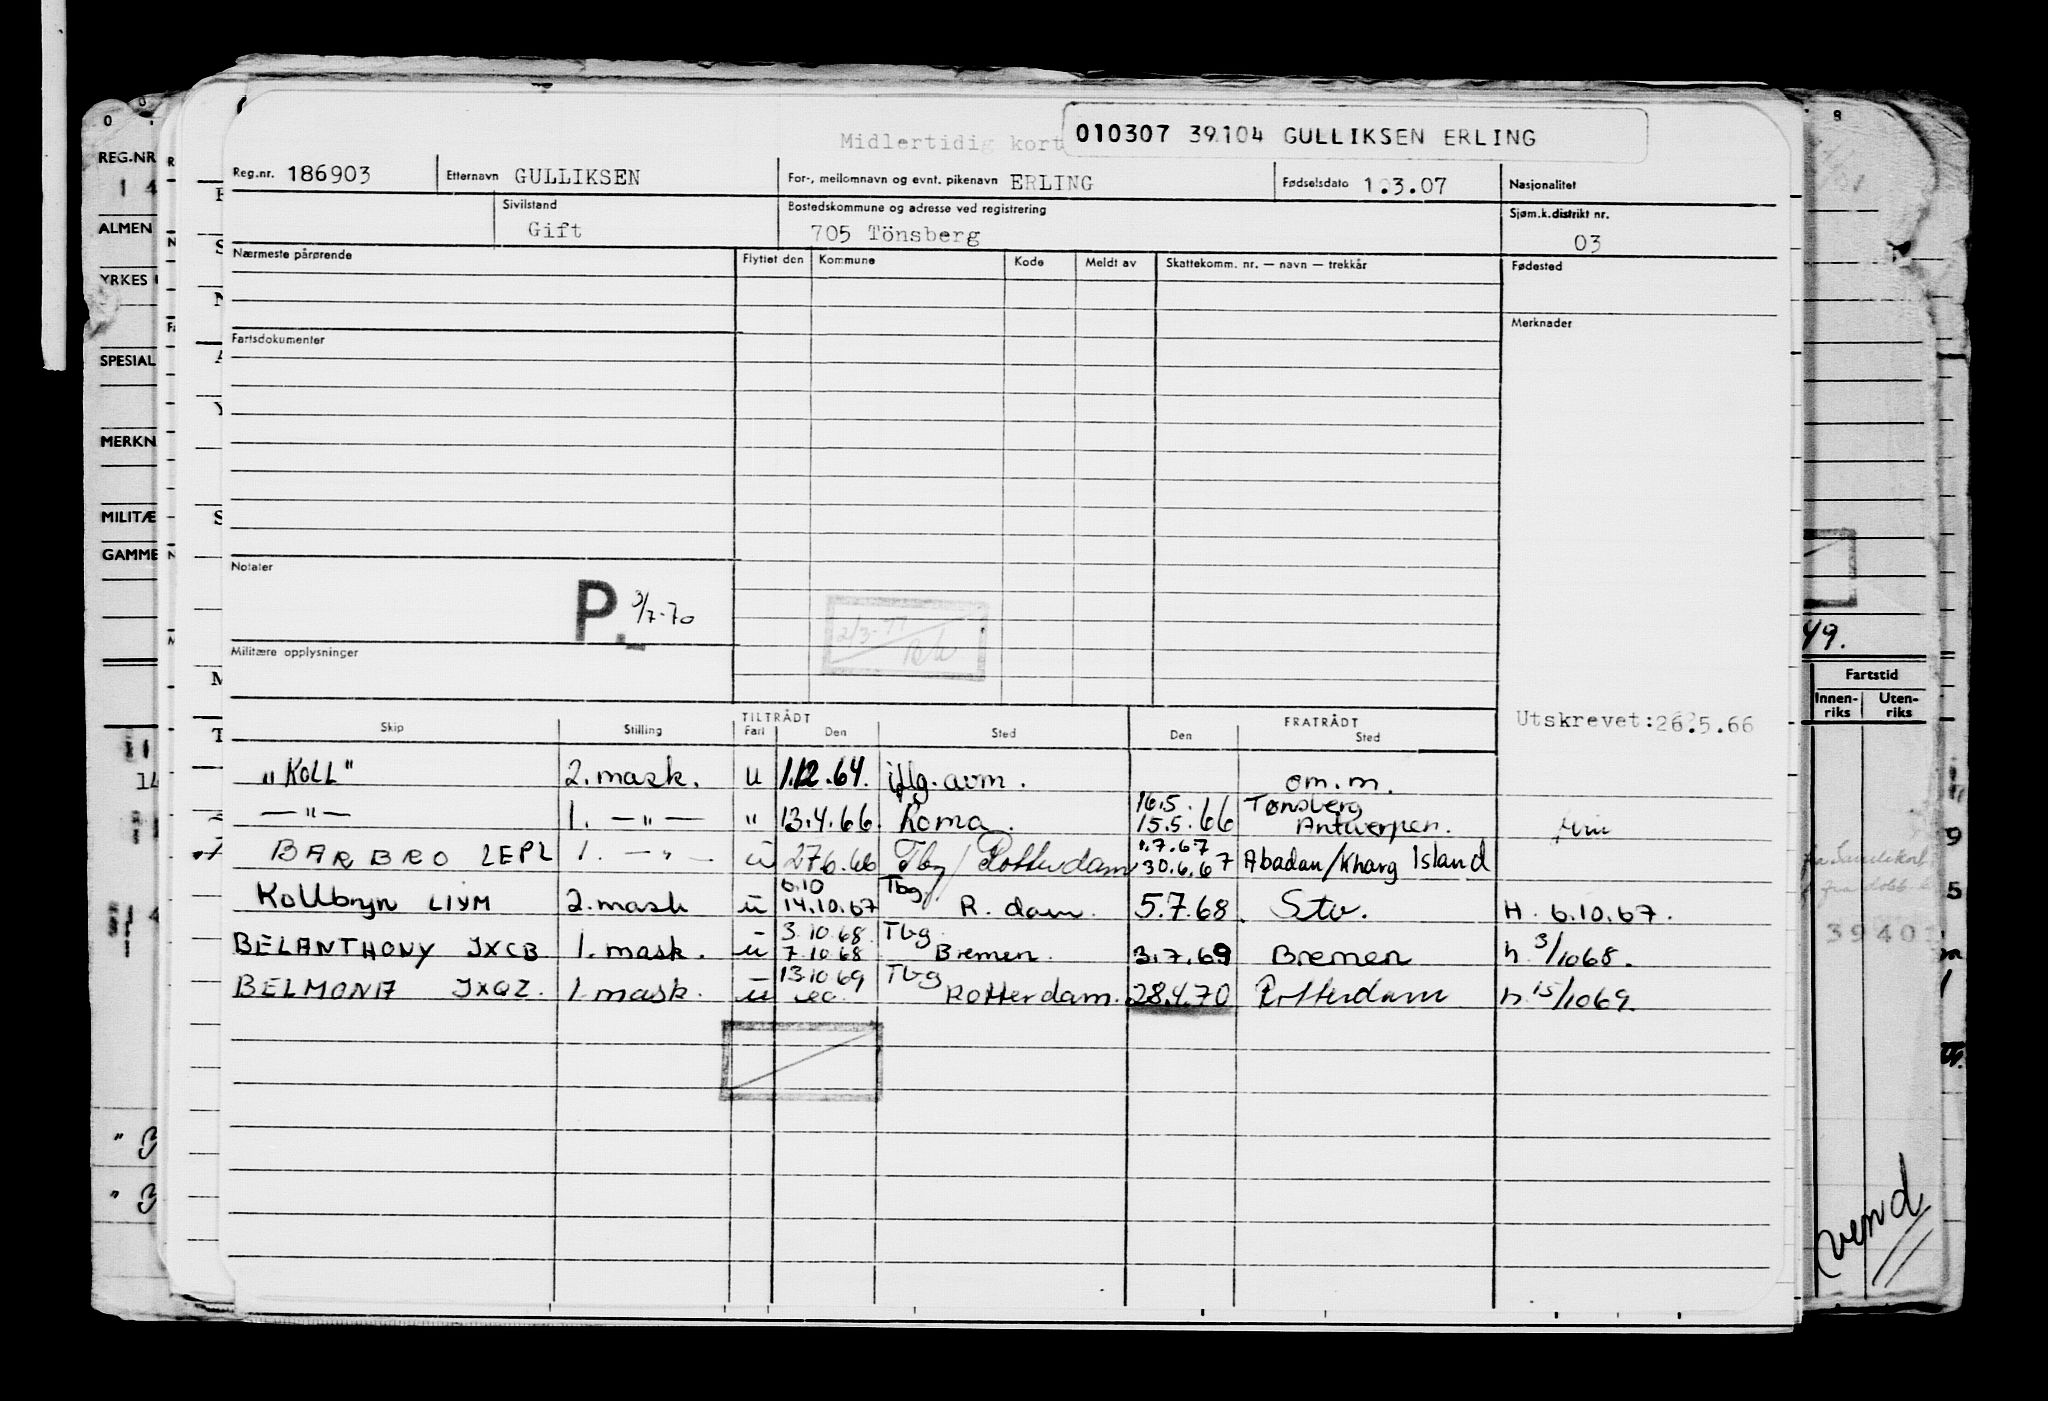 Midlertidig kort
010307 39104 GULLIKSEN ERLING
Reg.nr. 186903 Etternavn GULLIKSEN For-, mellomnavn og evnt. pikenavn ERLING Fødselsdato 1.3.07 Nasjonalitet
Sivilstand Gift Bostedskommune og adresse ved registrering 705 Tönsberg Sjøm.k.distrikt nr. 03
Nærmeste pårørende Flyttet den Kommune Kode Meldt av Skattekomm. nr. — navn — trekkår Fødested
Fartsdokumenter Merknader
Notater
P. 3/7-70
Militære opplysninger
Utskrevet:26.5.66
TILTRÅDT FRATRÅDT
Skip Stilling Fart Den Sted Den Sted
"KOLL" 2. mask. u 1.12.64. iflg. avm. om.m.
—"— 1. —"— " 13.4.66 Roma. 16.5. 15.5.66 Tønsberg Antwerpen.
BARBRO LEPL 1. —"— u 27.6.66 Tbg/Rotterdam 1.7.67 30.6.67 Abadan/Kharg Island
Kollbryn LIYM 2. mask u 6.10 14.10.67 Tbg. R. dam. 5.7.68. Stv. H. 6.10.67.
BELANTHONY JXCB 1. mask. u 3.10.68. 7.10.68 Tbg. Bremen. 3.7.69 Bremen h. 3/1068.
BELMONA JXQZ. 1. mask. u 13.10.69 Tbg Rotterdam. 28.4.70 Rotterdam h. 15/1069.
REG.NR
ALMEN
YRKES
SPESIAL
MERKN
MILITÆ
GAMME
49.
Fartstid
Innen-riks Uten-riks
vend